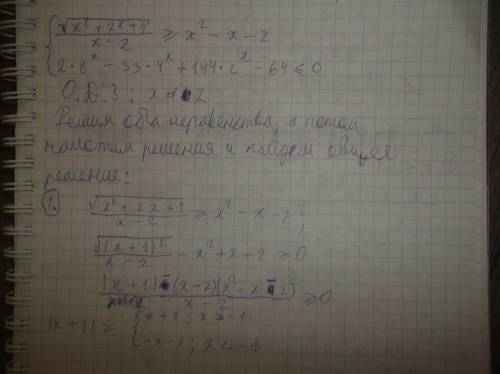 { √(x² + 2x + 1) / (x - 2) ≥ x² - x - 2
{ 2 · 8^x - 33 · 4^x + 144 · 2^x - 64 ≤ 0
О.Д.З ; x ≠ 2
Решим оба неравенства, а потом
решения и найдем общее
решение:
1. √(x² + 2x + 1) / (x - 2) ≥ x² - x - 2 ;
√((x + 1)²) / (x - 2) - x² + x + 2 ≥ 0
(|x + 1| - (x - 2)(x² - x - 2)) / (x - 2) ≥ 0
|x + 1| = { x + 1 ; x ≥ -1
{ -x - 1 ; x < -1